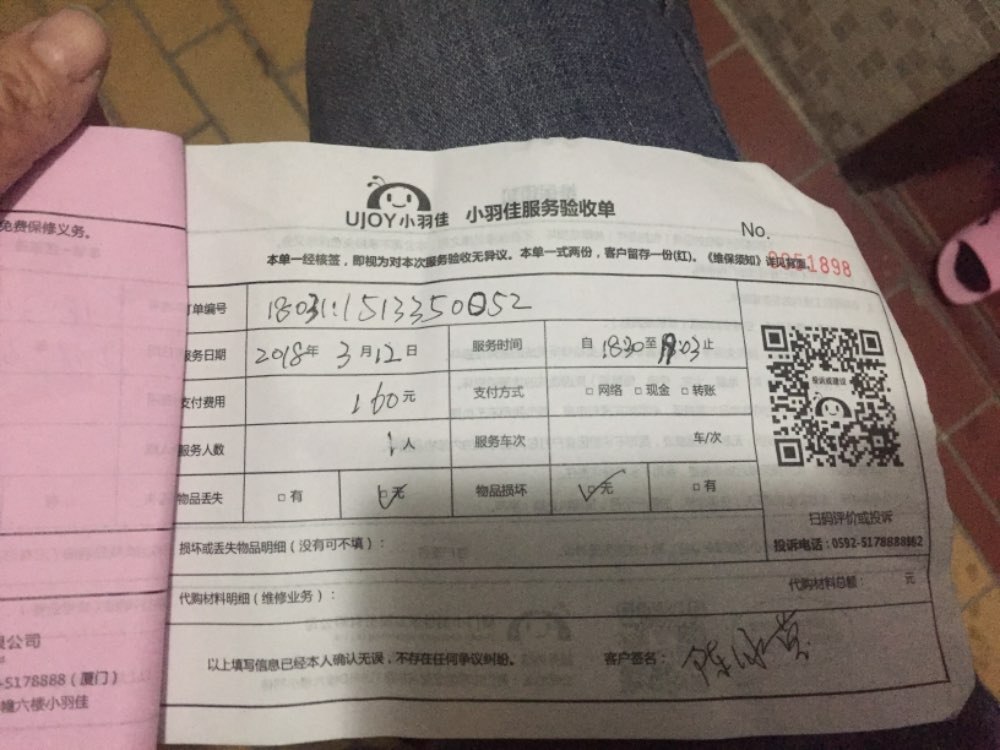 免费保修义务。
UJOY小羽佳 小羽佳服务验收单
No.
本单一经核签，即视为对本次服务验收无异议。本单一式两份，客户留存一份(红)。《维保须知》详见背面。
1898
订单编号
服务日期 2018年 3月12日 服务时间 自 1830至 止
支付费用 160元 支付方式 □ 网络 □ 现金 □ 转账
服务人数 1人 服务车次 车/次
物品丢失 □ 有 □ 无 物品损坏 □ 无 □ 有
投诉或建议
扫码评价或投诉
投诉电话：0592-5178888转862
损坏或丢失物品明细（没有可不填）：
代购材料明细（维修业务）： 代购材料总额： 元
以上填写信息已经本人确认无误，不存在任何争议纠纷。 客户签名：
限公司
-5178888（厦门）
幢六楼小羽佳